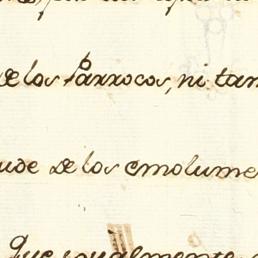 de los Parrocos, ni tam
ude de los emolume
Que igualmente